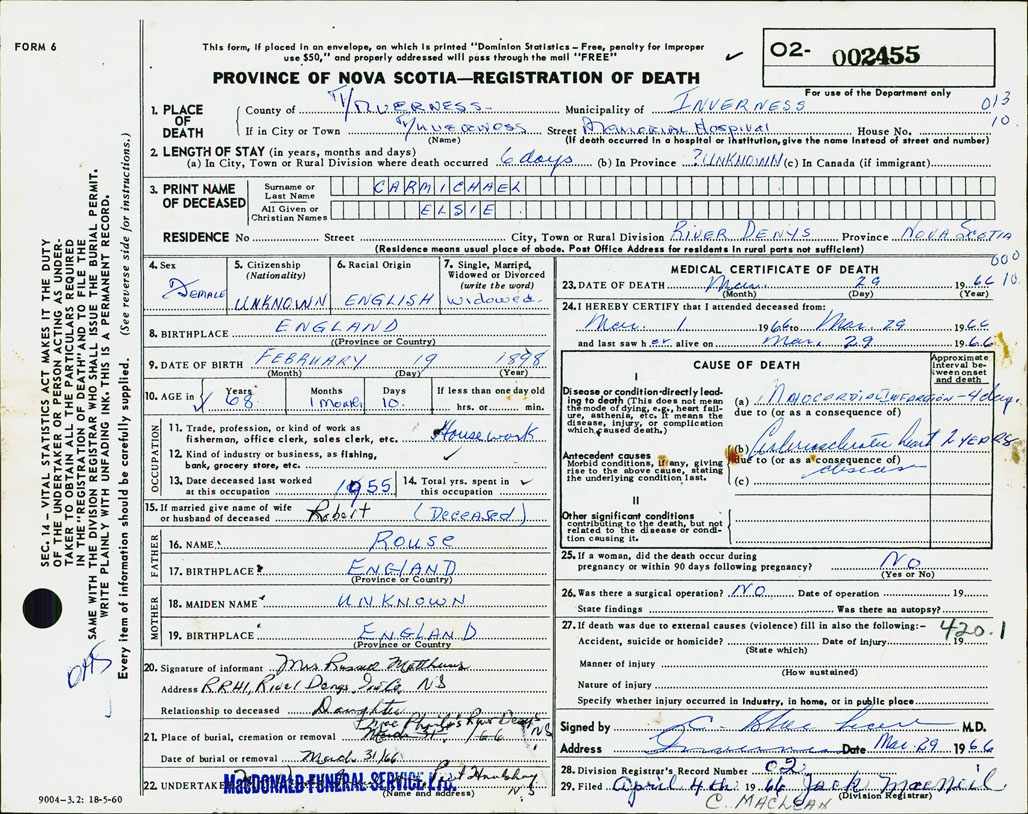 FORM 6
This form, if placed in an envelope, on which is printed "Dominion Statistics – Free, penalty for improper
use $50," and properly addressed will pass through the mail "FREE"
O2- 002455
For use of the Department only
PROVINCE OF NOVA SCOTIA—REGISTRATION OF DEATH
1. PLACE OF DEATH
County of INVERNESS Municipality of INVERNESS 013
If in City or Town INVERNESS Street MEMORIAL HOSPITAL House No. 10.
(Name) (If death occurred in a hospital or institution, give the name instead of street and number)
2. LENGTH OF STAY (in years, months and days)
(a) In City, Town or Rural Division where death occurred 6 days (b) In Province ?UNKNOWN (c) In Canada (if immigrant)
3. PRINT NAME OF DECEASED
Surname or Last Name CARMICHAEL
All Given or Christian Names ELSIE
RESIDENCE No Street City, Town or Rural Division RIVER DENYS Province NOVA SCOTIA
(Residence means usual place of abode. Post Office Address for residents in rural parts not sufficient)
000
10.
4. Sex Female
5. Citizenship (Nationality) UNKNOWN
6. Racial Origin ENGLISH
7. Single, Married, Widowed or Divorced (write the word) Widowed
8. BIRTHPLACE ENGLAND
((Province or Country)
9. DATE OF BIRTH FEBRUARY 19 1898
(Month) (Day) (Year)
10. AGE in Years 68 Months 1 month Days 10. If less than one day old hrs. or min.
OCCUPATION
11. Trade, profession, or kind of work as fisherman, office clerk, sales clerk, etc. Housework
12. Kind of industry or business, as fishing, bank, grocery store, etc.
13. Date deceased last worked at this occupation 1955
14. Total yrs. spent in this occupation
15. If married give name of wife or husband of deceased Robert (Deceased)
FATHER
16. NAME ROUSE
17. BIRTHPLACE ENGLAND
(Province or Country)
MOTHER
18. MAIDEN NAME UNKNOWN
19. BIRTHPLACE ENGLAND
(Province or Country)
20. Signature of informant Mrs Russell Matthews
Address RR#1, River Denys Inv Co. NS
Relationship to deceased Daughter
21. Place of burial, cremation or removal
Date of burial or removal March 31/66
22. UNDERTAKER MacDONALD FUNERAL SERVICE LTD. Port Hawkesbury NS
(Name and address)
9004–3.2: 18-5-60
MEDICAL CERTIFICATE OF DEATH
23. DATE OF DEATH Mar. 29 1966
(Month) (Day) (Year)
24. I HEREBY CERTIFY that I attended deceased from:
Mar. 1 1966 to Mar. 29 1966
and last saw her alive on Mar. 29 1966
CAUSE OF DEATH
Approximate interval between onset and death
I
Disease or condition directly leading to death (This does not mean the mode of dying, e.g., heart failure, asthenia, etc. It means the disease, injury, or complication which caused death.)
(a) MYOCARDIAL INFARCTION – 4 days.
due to (or as a consequence of)
Antecedent causes
Morbid conditions, if any, giving rise to the above cause, stating the underlying condition last.
(b) Arteriosclerotic heart 2 YEARS
due to (or as a consequence of)
disease
(c)
II
Other significant conditions
contributing to the death, but not related to the disease or condition causing it.
25. If a woman, did the death occur during pregnancy or within 90 days following pregnancy? NO
(Yes or No)
26. Was there a surgical operation? NO Date of operation 19
State findings Was there an autopsy?
27. If death was due to external causes (violence) fill in also the following:– 420.1
Accident, suicide or homicide? Date of injury 19
(State which)
Manner of injury
(How sustained)
Nature of injury
Specify whether injury occurred in Industry, in home, or in public place
Signed by M.D.
Address Inverness Date Mar. 29 1966
28. Division Registrar's Record Number 02
29. Filed April 4th 1966 Jack MacNeil
(Division Registrar)
C. MACLEAN
SEC. 14 – VITAL STATISTICS ACT MAKES IT THE DUTY
OF THE UNDERTAKER OR PERSON ACTING AS UNDERTAKER
TO OBTAIN ALL THE PARTICULARS REQUIRED
IN THE "REGISTRATION OF DEATH" AND TO FILE THE
SAME WITH THE DIVISION REGISTRAR WHO SHALL ISSUE THE BURIAL PERMIT.
WRITE PLAINLY WITH UNFADING INK. THIS IS A PERMANENT RECORD.
Every item of information should be carefully supplied. (See reverse side for instructions.)